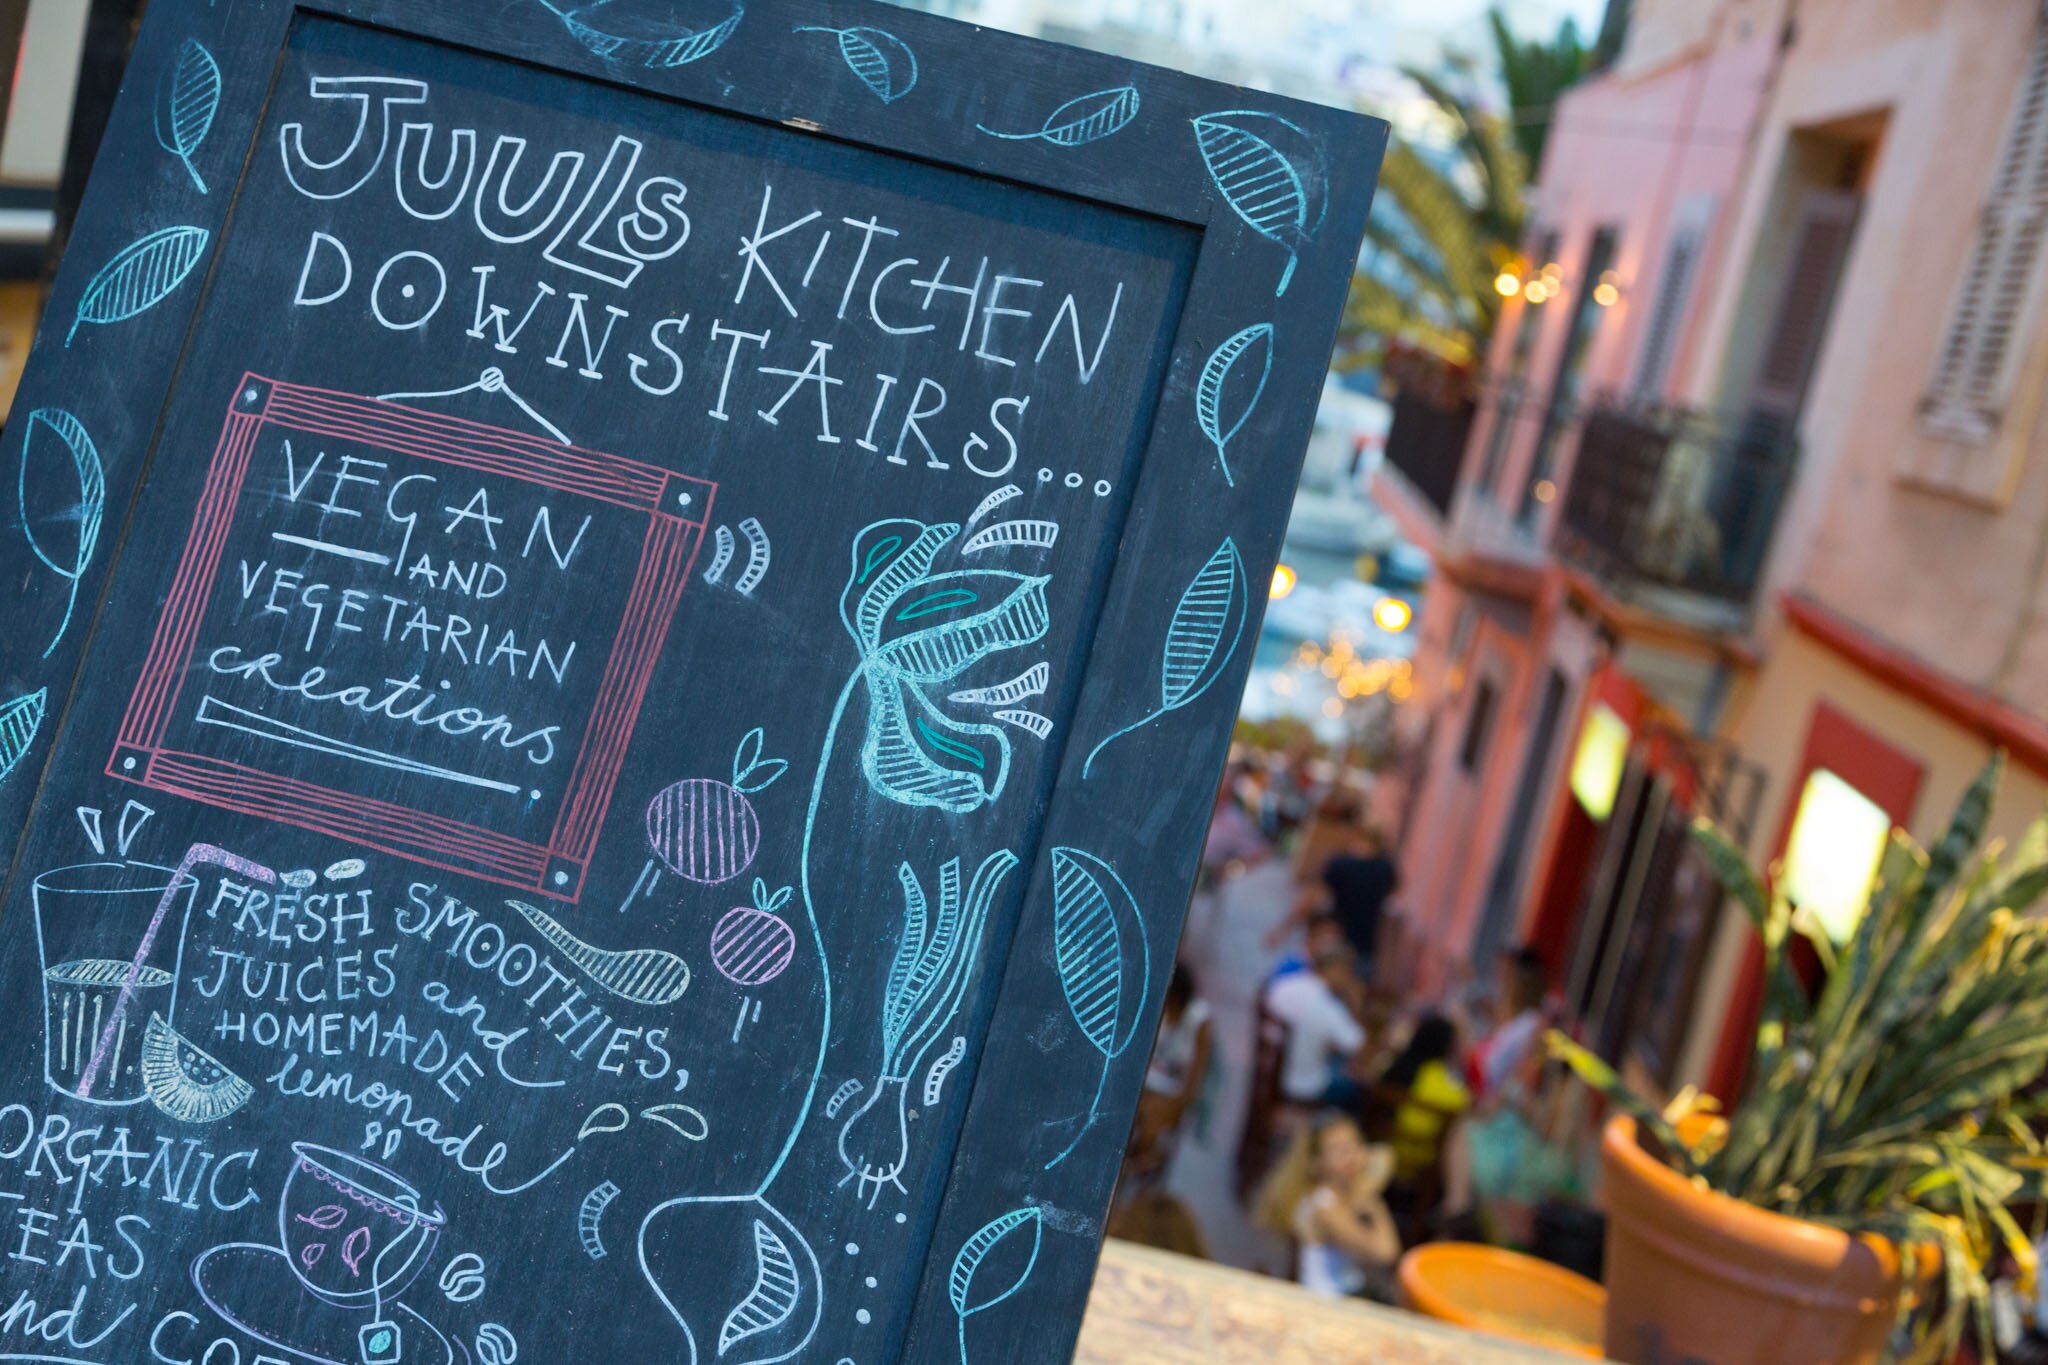 JUULs KITCHEN
DOWNSTAIRS...
VEGAN
AND
VEGETARIAN
creations
FRESH SMOOTHIES,
JUICES and
HOMEMADE
lemonade
ORGANIC
TEAS